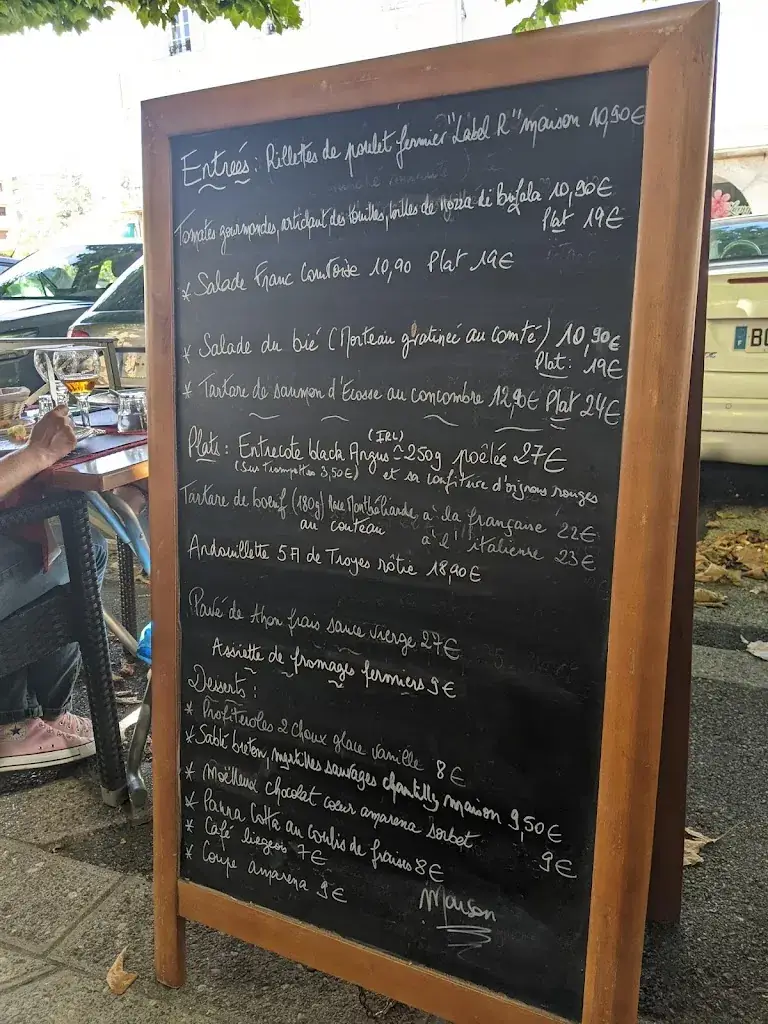 Entrées : Rillettes de poulet fermier "Label R" maison 10,90€
Tomates gourmandes, artichaut des familles, billes de mozza di bufala 10,90€
Plat 19€
* Salade Franc Comtoise 10,90 Plat 19€
* Salade du bié (Morteau gratinée au comté) 10,90€
Plat : 19€
* Tartare de saumon d'Ecosse au concombre 12,90€ Plat 24€
Plats : Entrecote black Angus (IRL) ~250g poêlée 27€
(Sur 3,50€) et sa confiture d'oignons rouges
Tartare de boeuf (180g) Race Montbéliarde à la française 22€
au couteau à l'italienne 23€
Andouillette 5A de Troyes rôtie 18,90€
Pavé de thon frais sauce vierge 27€
Assiette de fromages fermiers 9€
Desserts :
* Profiteroles 2 choux glace vanille 8€
* Sablé breton, myrtilles sauvages chantilly maison 9,50€
* Moëlleux chocolat coeur amarena sorbet 9€
* Panna Cotta au coulis de fraises 8€
* Café liegeois 7€
* Coupe amarena 9€
Maison